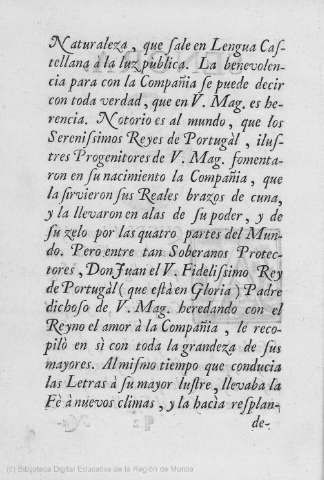 Naturaleza, que ſale en Lengua Caſ-
tellana à la luz pública. La benevolen-
cia para con la Compañia ſe puede decir
con toda verdad, que en V. Mag. es he-
rencia. Notorio es al mundo, que los
Sereniſsimos Reyes de Portugàl, iluſ-
tres Progenitores de V. Mag. fomenta-
ron en ſu nacimiento la Compañia, que
la ſirvieron ſus Reales brazos de cuna,
y la llevaron en alas de ſu poder, y de
ſu zelo por las quatro partes del Mun-
do. Pero entre tan Soberanos Protec-
tores, Don Juan el V. Fideliſsimo Rey
de Portugàl (que eſtà en Gloria) Padre
dichoſo de V. Mag. heredando con el
Reyno el amor à la Compañia, le reco-
pilò en sì con toda la grandeza de ſus
mayores. Al miſmo tiempo que conducia
las Letras à ſu mayor luſtre, llevaba la
Fè à nuevos climas, y la hacia reſplan-
de-
(c) Biblioteca Digital Educativa de la Región de Murcia